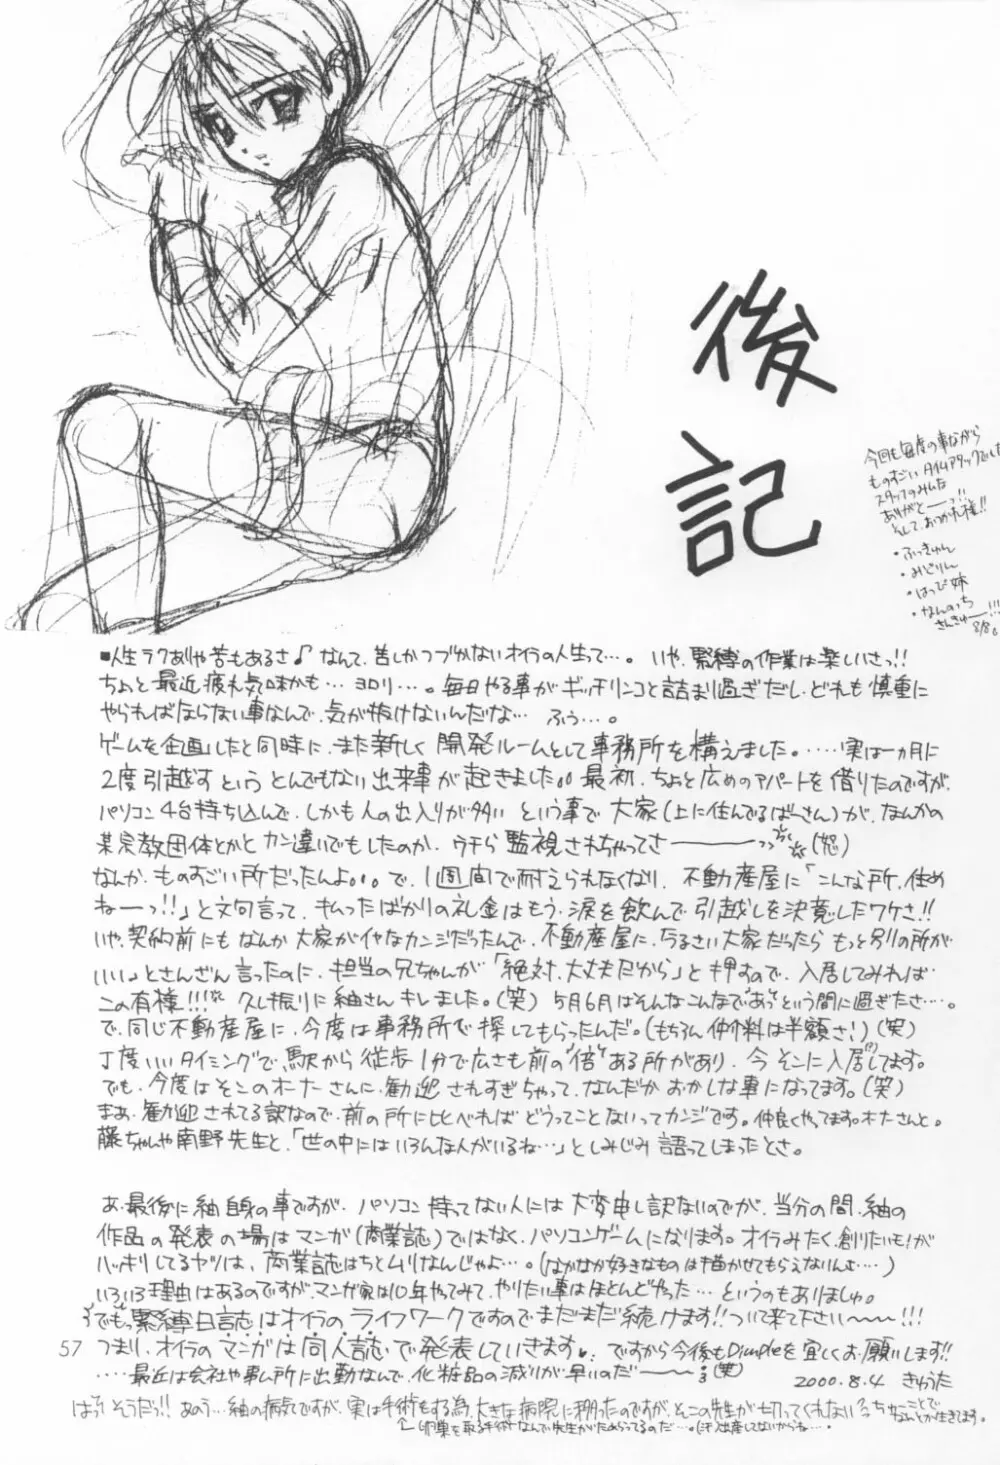 後記
今回も毎度の事ながら
ものすごいタイムアタックでした
スタッフのみんな
ありがとーーっ!!
そして、おつかれ様!!
・ふっきゅん
・みどりん
・はっぴ姉
・なんのっち
さんきゅー!!!
■人生ラクありゃ苦もあるさ♪ なんて、苦しかつづかないオイラの人生って…。 いや、緊縛の作業は楽しいさっ!!
ちょっと最近疲れ気味かも…ヨロリ…。毎日やる事がギッチリンコと詰まり過ぎだし、どれも慎重に
やらればならない事なんで、気が抜けないんだな… ふぅ…。
ゲームを企画したと同時に、また新しく開発ルームとして事務所を構えました。……実は一ヵ月に
2度引越すというとんでもない出来事が起きました。。最初、ちょっと広めのアパートを借りたのですが、
パソコン4台持ち込んで、しかも人の出入りが多いという事で大家(上に住んでるばーさん)が、なんかの
某宗教団体とかとカン違いでもしたのか、ウチら監視されちゃってさーーーっっ (怒)
なんか、ものすごい所だったんよ。。。で、1週間で耐えられなくなり、不動産屋に「こんな所、住め
ねーっ!!」と文句言って、もらったばかりの礼金はもう、涙を飲んで引越しを決意したワケさ!!
いや、契約前にもなんか大家がイヤなカンジだったんで、不動産屋に、うるさい大家だったらもっと別の所が
いい。とさんざん言ったのに、担当の兄ちゃんが「絶対、大丈夫だから」と押すので、入居してみれば
この有様!!! 久し振りに紬さんキレました。(笑) 5月6月はそんなこんなで"あっ"という間に過ぎたさ…。
で、同じ不動産屋に、今度は事務所で探してもらったんだ。(もちろん仲介料は半額さ!)(笑)
丁度いいタイミングで、駅から徒歩1分で広さも前の"倍"ある所があり、今そこに入居してます。
でも、今度はそこのオーナーさんに、歓迎されすぎちゃって、なんだかおかしな事になってます。(笑)
まあ、歓迎されてる訳なので、前の所に比べればどうってことないってカンジです。仲良くやってます。オーナーさんと。
藤ちゃんや南野先生と、「世の中にはいろんな人がいるね…」としみじみ語ってしまったとさ。
あ、最後に紬自身の事ですが、パソコン持ってない人には大変申し訳ないのですが、当分の間、紬の
作品の発表の場はマンガ(商業誌)ではなく、パソコンゲームになります。オイラみたく、創りたいモノが
ハッキリしてるヤツは、商業誌はちとムリなんじゃよ…。(なかなか好きなものは描かせてもらえないんよ…)
いろいろ理由はあるのですが、マンガ家は10年やってみて、やりたい事はほとんどやった… というのもありましゅ。
でもっ緊縛日誌はオイラのライフワークですのでまだまだ続けます!!ついて来て下さい〜〜!!!
つまり、オイラのマンガは同人誌で発表していきます♥ ですから今後もDimpleを宜しくお願いします!!
……最近は会社や事ム所に出勤なんで、化粧品の減りが早いのだー (笑)
2000.8.4 きゅうた
はっ!そうだっ!! あのう…紬の病気ですが、実は手術もする為、大きな病院に移ったのですが、そこの先生が切ってくれないっちゅーことで
なんとか生きてます。
卵巣を取る手術なんで、先生がためらってるのだ…。(まだ出産してないからね…。
57